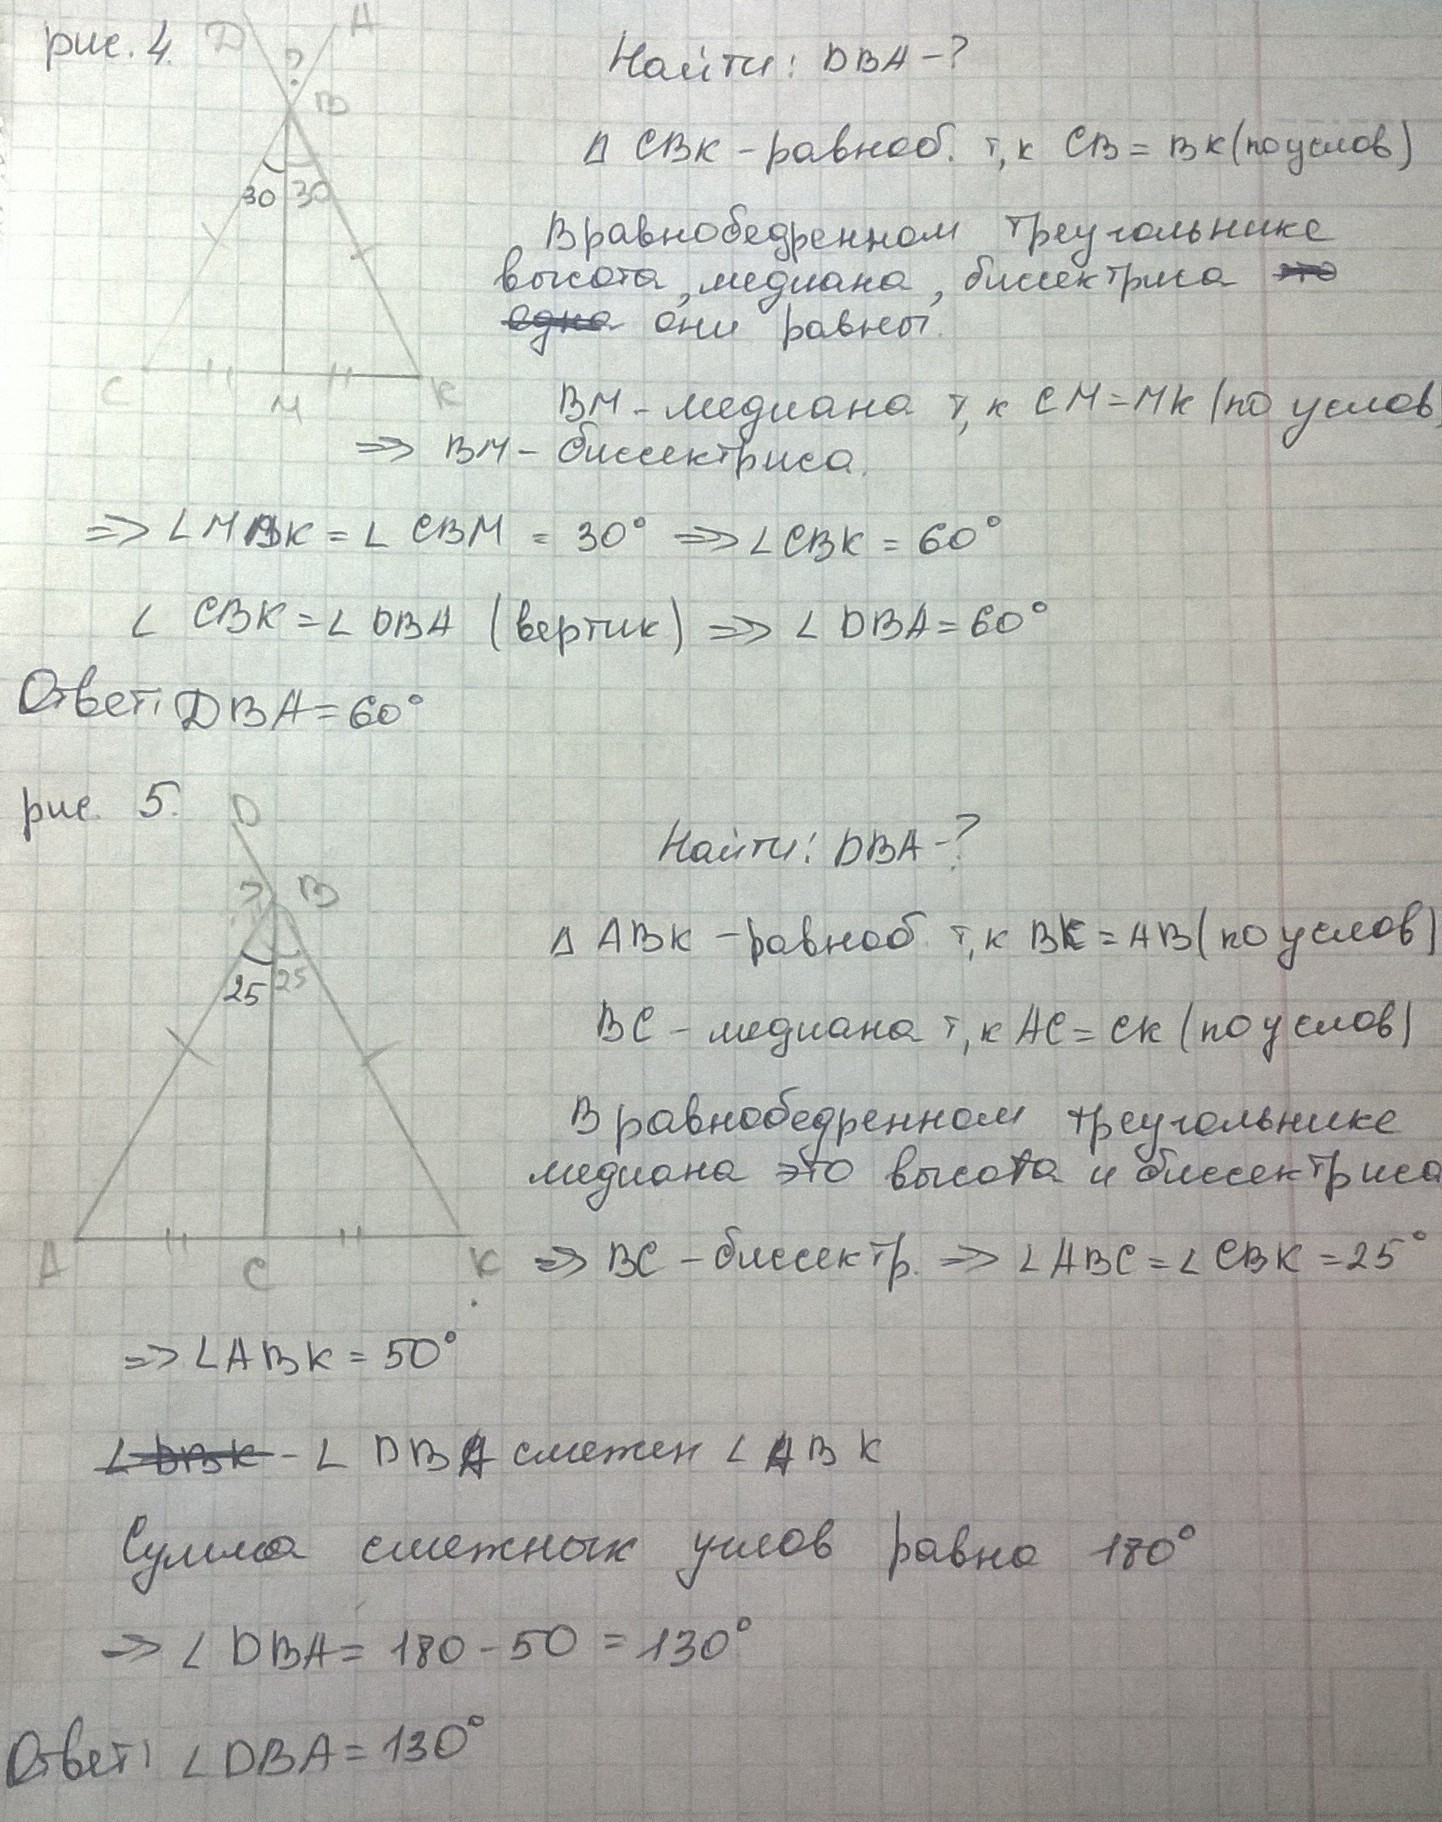 рис. 4.
D
A
?
B
30
30
C
M
K
Найти: DBA -?
Δ CBK - равноб. т, к CB = BK (по услов)
В равнобедренном треугольнике
высота, медиана, биссектриса это
одна они равны.
BM - медиана т, к CM = MK (по услов,
=> BM - биссектриса.
=> ∠MBK = ∠ CBM = 30° => ∠CBK = 60°
∠ CBK = ∠ DBA (вертик) => ∠ DBA = 60°
Ответ: DBA = 60°
рис. 5.
D
?
B
25
25
A
C
K
Найти: DBA -?
Δ ABK - равноб т, к BK = AB (по услов)
BC - медиана т, к AC = CK (по услов)
В равнобедренном треугольнике
медиана это высота и биссектриса
=> BC - биссектр. => ∠ABC = ∠ CBK = 25°
=> ∠ABK = 50°
∠ DBK - ∠ DBA смежен ∠ ABK
Сумма смежных углов равна 180°
=> ∠ DBA = 180 - 50 = 130°
Ответ: ∠DBA = 130°